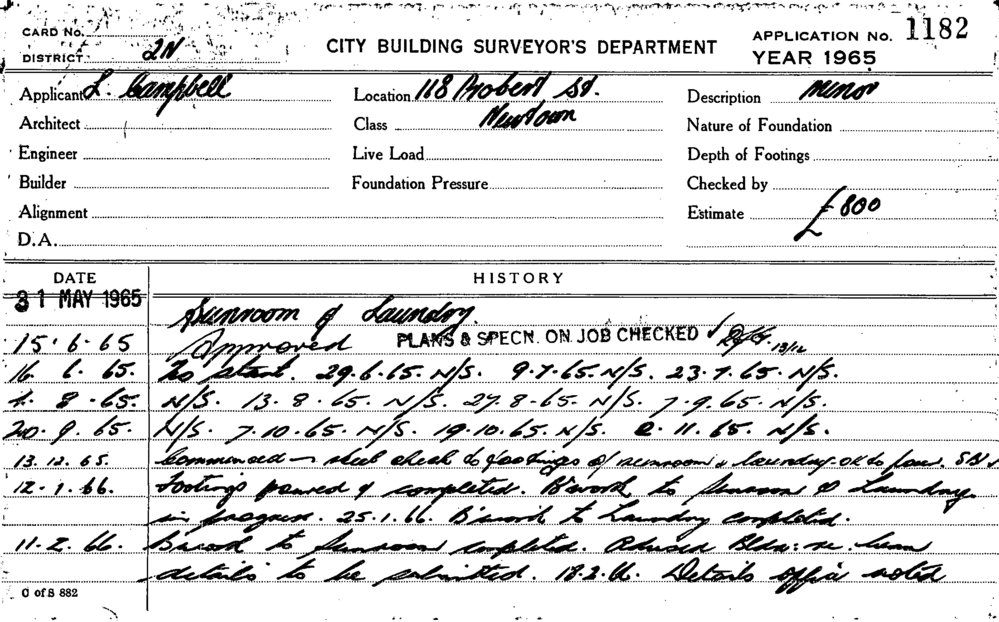 CARD No.
DISTRICT 2N
CITY BUILDING SURVEYOR'S DEPARTMENT
APPLICATION No. 1182
YEAR 1965
Applicant L. Campbell
Location 118 Probert St.
Description Minor
Architect
Class Newtown
Nature of Foundation
Engineer
Live Load
Depth of Footings
Builder
Foundation Pressure
Checked by
Alignment
Estimate £800
D.A.
DATE HISTORY
31 MAY 1965 Sunroom & Laundry.
15.6.65 Approved PLANS & SPECN. ON JOB CHECKED 13/12
16 6. 65. To start. 29.6.65. N/S. 9.7.65. N/S. 23.7.65. N/S.
8.65. N/S. 13.8.65. N/S. 27.8.65. N/S. 7.9.65. N/S.
20.9.65. N/S. 7.10.65. N/S. 19.10.65. N/S. 11.65. N/S.
13.12.65. Commenced - steel check to footings of sunroom & laundry - OK to pour.
12.1.66. Footings poured & completed. B'work to Sunroom & Laundry
in progress. 25.1.66. B'work to Laundry completed.
11.2.66. B'work to Sunroom completed. Advised Bldr: re. beam
details to be submitted. 18.2.66. Details office noted
C of S 882